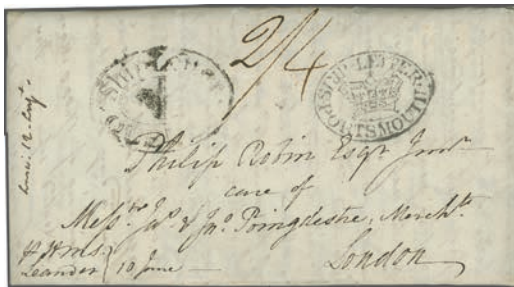 2/4
SHIP-LETTER
PORTSMOUTH
SHIP LETTER
Philip Robin Esqr Junr
care of
Messrs Jas & Jno Poingdestre, Merchts
London
pr HMS.
Leander } 10 June